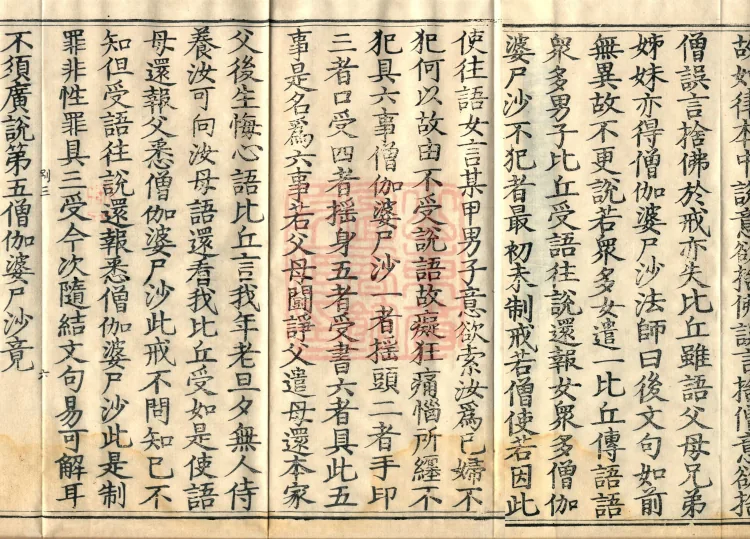 故如律本中說意欲捨佛誤言捨僧意欲捨
僧誤言捨佛於戒亦失比丘雖語父母兄弟
姊妹亦得僧伽婆尸沙法師曰後文句如前
無異故不更說若衆多女遣一比丘傳語語
衆多男子比丘受語往說還報女衆多僧伽
婆尸沙不犯者最初未制戒若僧使若因此
使往語女言某甲男子意欲索汝爲已婦不
犯何以故由不受說語故癡狂痛惱所纏不
犯具六事僧伽婆尸沙一者揺頭二者手印
三者口受四者揺身五者受書六者具此五
事是名爲六事若父母鬪諍父遣母還本家
父後生悔心語比丘言我年老旦夕無人侍
養汝可向汝母語還看我比丘受如是使語
母還報父悉僧伽婆尸沙此戒不問知已不
知但受語往說還報悉僧伽婆尸沙此是制
罪非性罪具三受今次隨結文句易可解耳
不須廣說第五僧伽婆尸沙竟